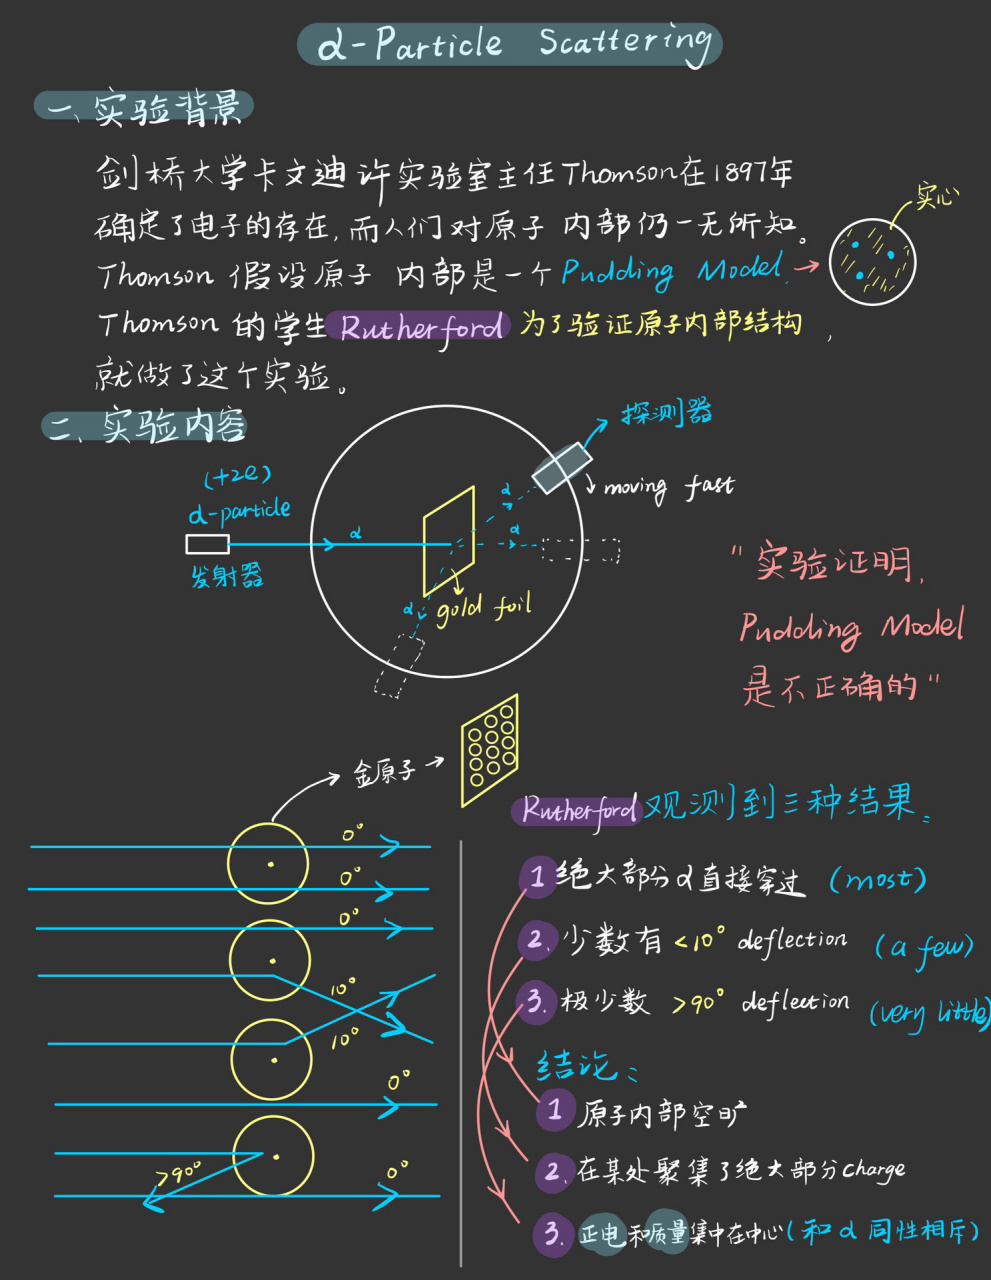 α-Particle Scattering
一、实验背景
剑桥大学卡文迪许实验室主任Thomson在1897年
确定了电子的存在,而人们对原子内部仍一无所知。
实心
Thomson假设原子内部是一个Pudding Model.
Thomson的学生Rutherford为了验证原子内部结构,
就做了这个实验。
二、实验内容
探测器
(+2e)
α-particle
发射器
α
α
α
α
moving fast
gold foil
"实验证明,
Pudding Model
是不正确的"
金原子
0°
0°
0°
10°
10°
0°
>90°
0°
Rutherford观测到三种结果:
1 绝大部分α直接穿过 (most)
2. 少数有<10° deflection (a few)
3. 极少数 >90° deflection (very little)
结论:
1 原子内部空旷
2. 在某处聚集了绝大部分charge
3. 正电和质量集中在中心(和α同性相斥)